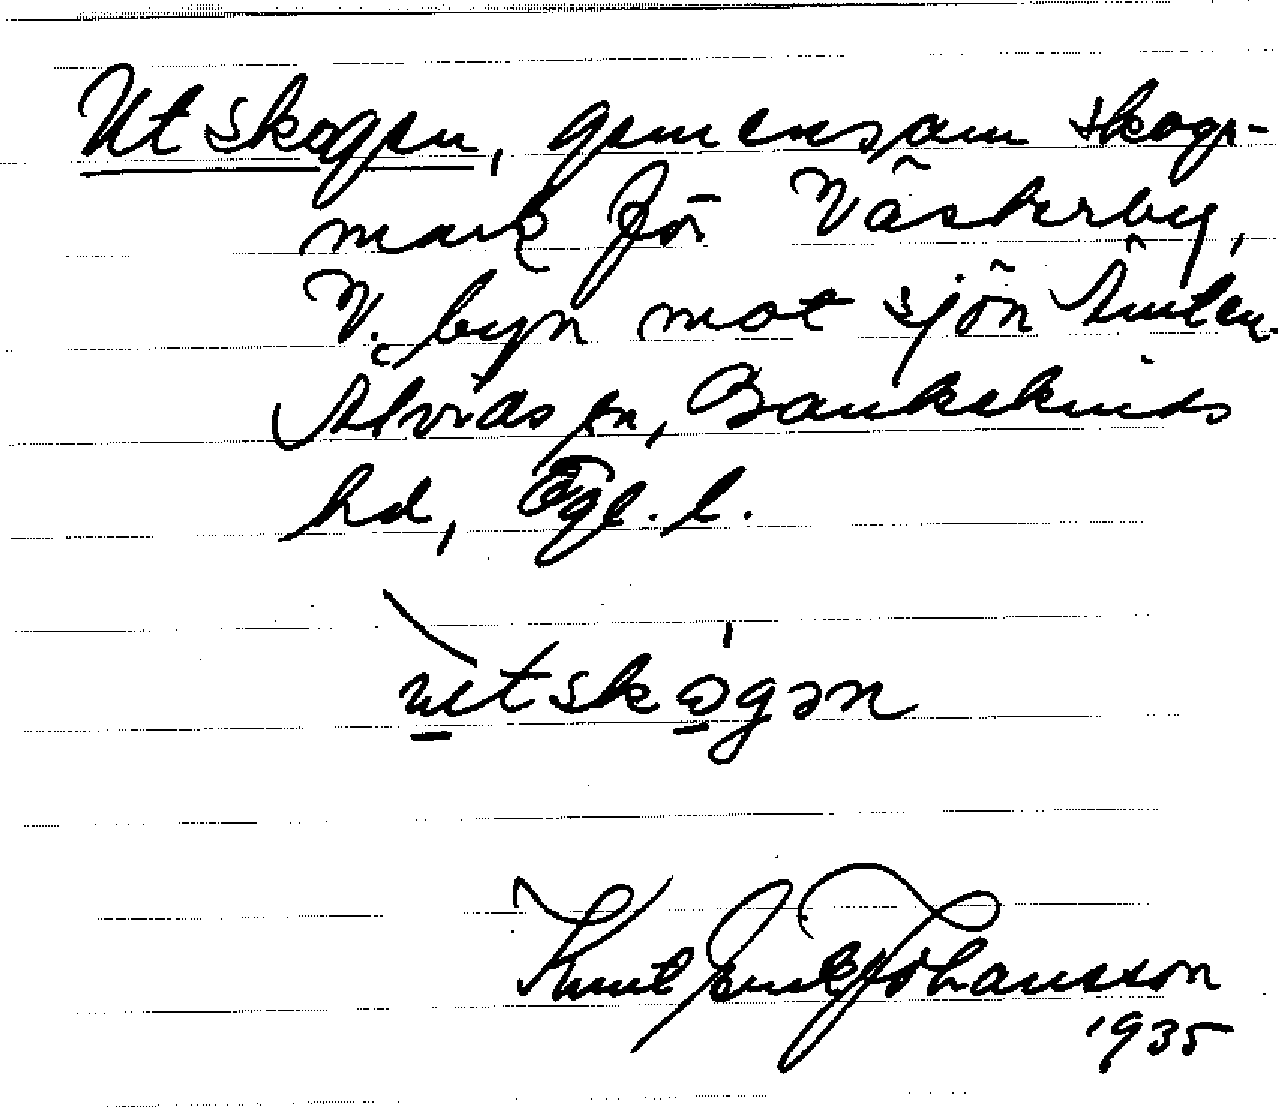 Utskogen, gemensam skogs-
mark för Västerby,
V. byn mot sjön Ämten.
Ålvids sn, Bankekinds
hd, Ögl. l.
utskogən
Knut Erik Johansson
1935